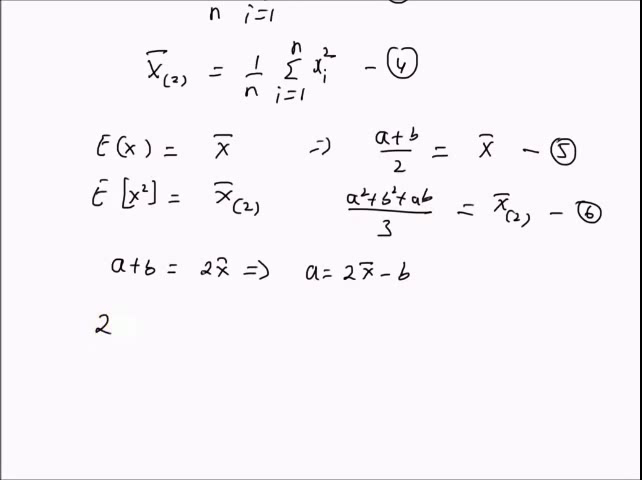 n i=1
x̄₍₂₎ = 1/n Σ_{i=1}^{n} xᵢ² - ④
E(x) = x̄ ⇒ (a+b)/2 = x̄ - ⑤
E[x²] = x̄₍₂₎ (a²+b²+ab)/3 = x̄₍₂₎ - ⑥
a+b = 2x̄ ⇒ a = 2x̄ - b
2